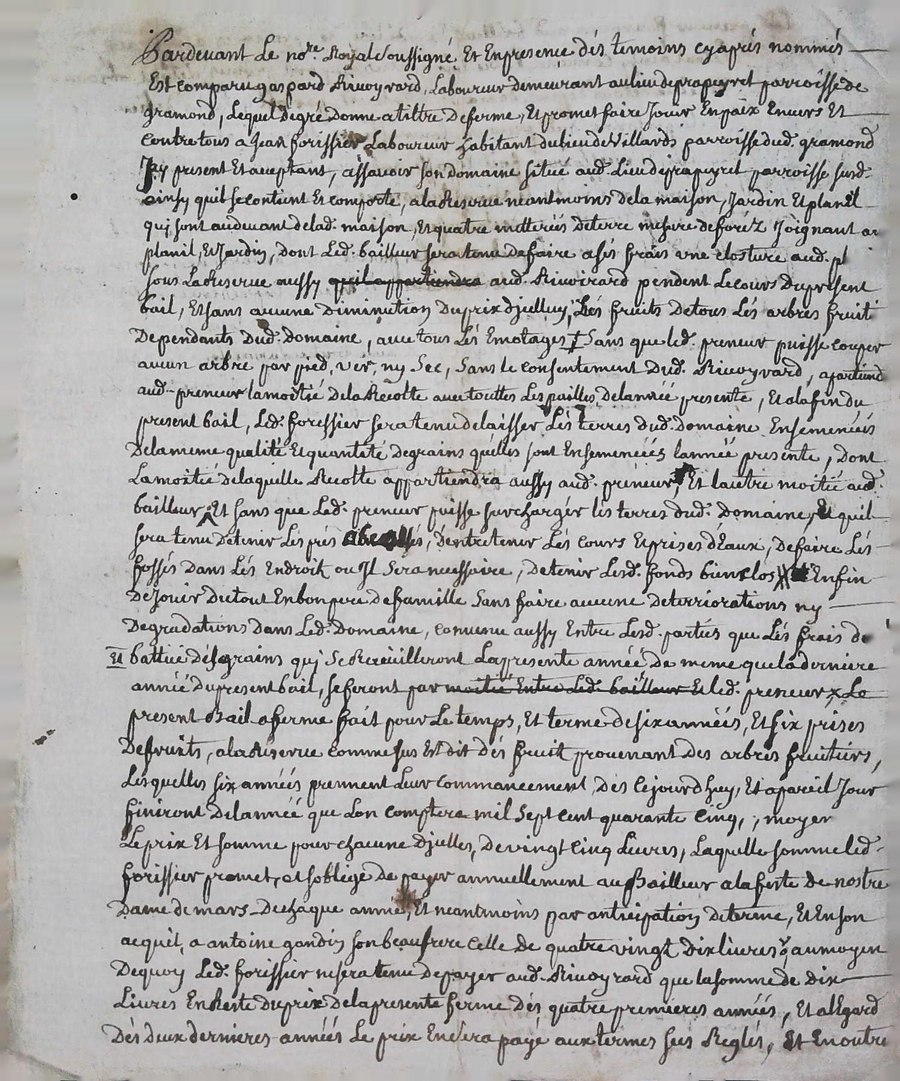 Pardevant Le no.re Royal Soussigné Et En presence dés temoins cy aprés nommés
Est comparu gaspard Rivoyrard, Laboureur demeurant au lieu de prapeyret parroisse de
gramond, Lequel de gré donne a tiltre de ferme, Et promet faire Jouir En paix Envers Et
contre tous a Jean forissier Laboureur habitant du lieu de Villards parroisse dud. gramond
Icy present Et acceptant, assavoir son domaine situé aud. Lieu de prapeyret parroisse susd.
ainsy quil se contient Et comporte, a la Reserve neantmoins de la maison, Jardin Et planil
quj sont au devant de lad. maison, Et quatre metterées de terre mesure de foréz Joignant
planil, Et Jardin, dont Led. bailleur sera tenu de faire a sés frais une closture aud.
sous La Reserve aussy quil appartiendra aud. Rivoirard pendent Le cours du present
bail, Et sans aucune Diminution Du prix djcelluy, Lés fruits de tous Lés arbres fruit
Dependants Dud. Domaine, avec tous Lés Emotages Sans que led. preneur puisse couper
aucun arbre par pied, vér, ny Sec, Sans le consentement Dud. Rivoyrard,
aud. preneur la moitié de la Recolte avec touttes Les pailles de l'année presente, Et a la fin du
present bail, Led. forissier sera tenu de laisser Lés terres dud. Domaine Ensemencéés
De la meme qualité Et quantité de grains quélles sont Ensemencéés L'année presente, dont
La moitié de laquelle Recolte appartiendra aussy aud. preneur, Et l'autre moitié aud.
bailleur Et sans que Led. preneur puisse surcharger les terres dud. Domaine, Et quil
sera tenu De tenir Les prés, D'entretenir Lés cours Et prises d'Eaux, De faire Lés
fossés dans Lés Endroit ou Jl Sera necessaire, De tenir Lesd. fonds bien clos Enfin
De Jouir du tout En bon pere de famille Sans faire aucune deterriorations ny
Degradations dans Led. Domaine, convenu aussy Entre Lesd. parties que Lés frais de
battue dés grains quj Se Recuëilleront La presente année de meme que la derniere
année du present bail, se feront par moitié Entre Led. bailleur Et led. preneur Le
present Bail a ferme fait pour Le temps, Et terme de six annéés, Et six prises
De fruits, a la Reserve comme sus Est dit dés fruit provenant Des arbres fruitiers,
Lésquelles six annéés prennent Leur commancement, dés Cejourdhuy, Et a pareil Jour
finiront de l'année que L'on comptera mil Sept cent quarante Cinq, moyen
Le prix Et somme pour chacune Djcelles, De vingt Cinq Livres, Laquelle somme led.
forissier promet, Et soblige De payer annuellement au Bailleur a la feste de nostre
Dame de mars De chaque année, Et neantmoins par anticipation De terme, Et En son
acquit, a antoine gandin son beaufrere Celle de quatre vingt Dix livres, au moyen
De quoy Led. forissier ne sera tenu de payer aud. Rivoyrard que la somme de Dix
Livres En Reste Du prix de la presente ferme des quatre premieres années, Et a l'Egard
Dés deux dernieres annéés Le prix En sera payé aux termes sus Reglés, Et En outre